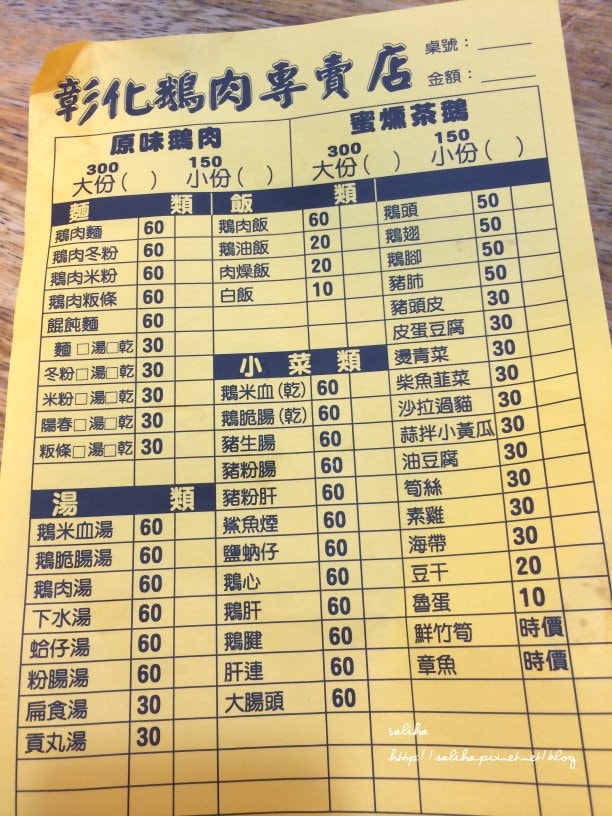 彰化鵝肉專賣店
桌號：
金額：
原味鵝肉
300 150
大份( ) 小份( )
蜜燻茶鵝
300 150
大份( ) 小份( )
麵 類
鵝肉麵 60
鵝肉冬粉 60
鵝肉米粉 60
鵝肉粄條 60
餛飩麵 60
麵□湯□乾 30
冬粉□湯□乾 30
米粉□湯□乾 30
陽春□湯□乾 30
粄條□湯□乾 30
湯 類
鵝米血湯 60
鵝脆腸湯 60
鵝肉湯 60
下水湯 60
蛤仔湯 60
粉腸湯 60
扁食湯 30
貢丸湯 30
飯 類
鵝肉飯 60
鵝油飯 20
肉燥飯 20
白飯 10
小 菜 類
鵝米血(乾) 60
鵝脆腸(乾) 60
豬生腸 60
豬粉腸 60
豬粉肝 60
鯊魚煙 60
鹽蚋仔 60
鵝心 60
鵝肝 60
鵝腱 60
肝連 60
大腸頭 60
鵝頭 50
鵝翅 50
鵝腳 50
豬肺 50
豬頭皮 30
皮蛋豆腐 30
燙青菜 30
柴魚韮菜 30
沙拉過貓 30
蒜拌小黃瓜 30
油豆腐 30
筍絲 30
素雞 30
海帶 30
豆干 20
魯蛋 10
鮮竹筍 時價
章魚 時價
saliha
http://saliha.pixnet.net/blog